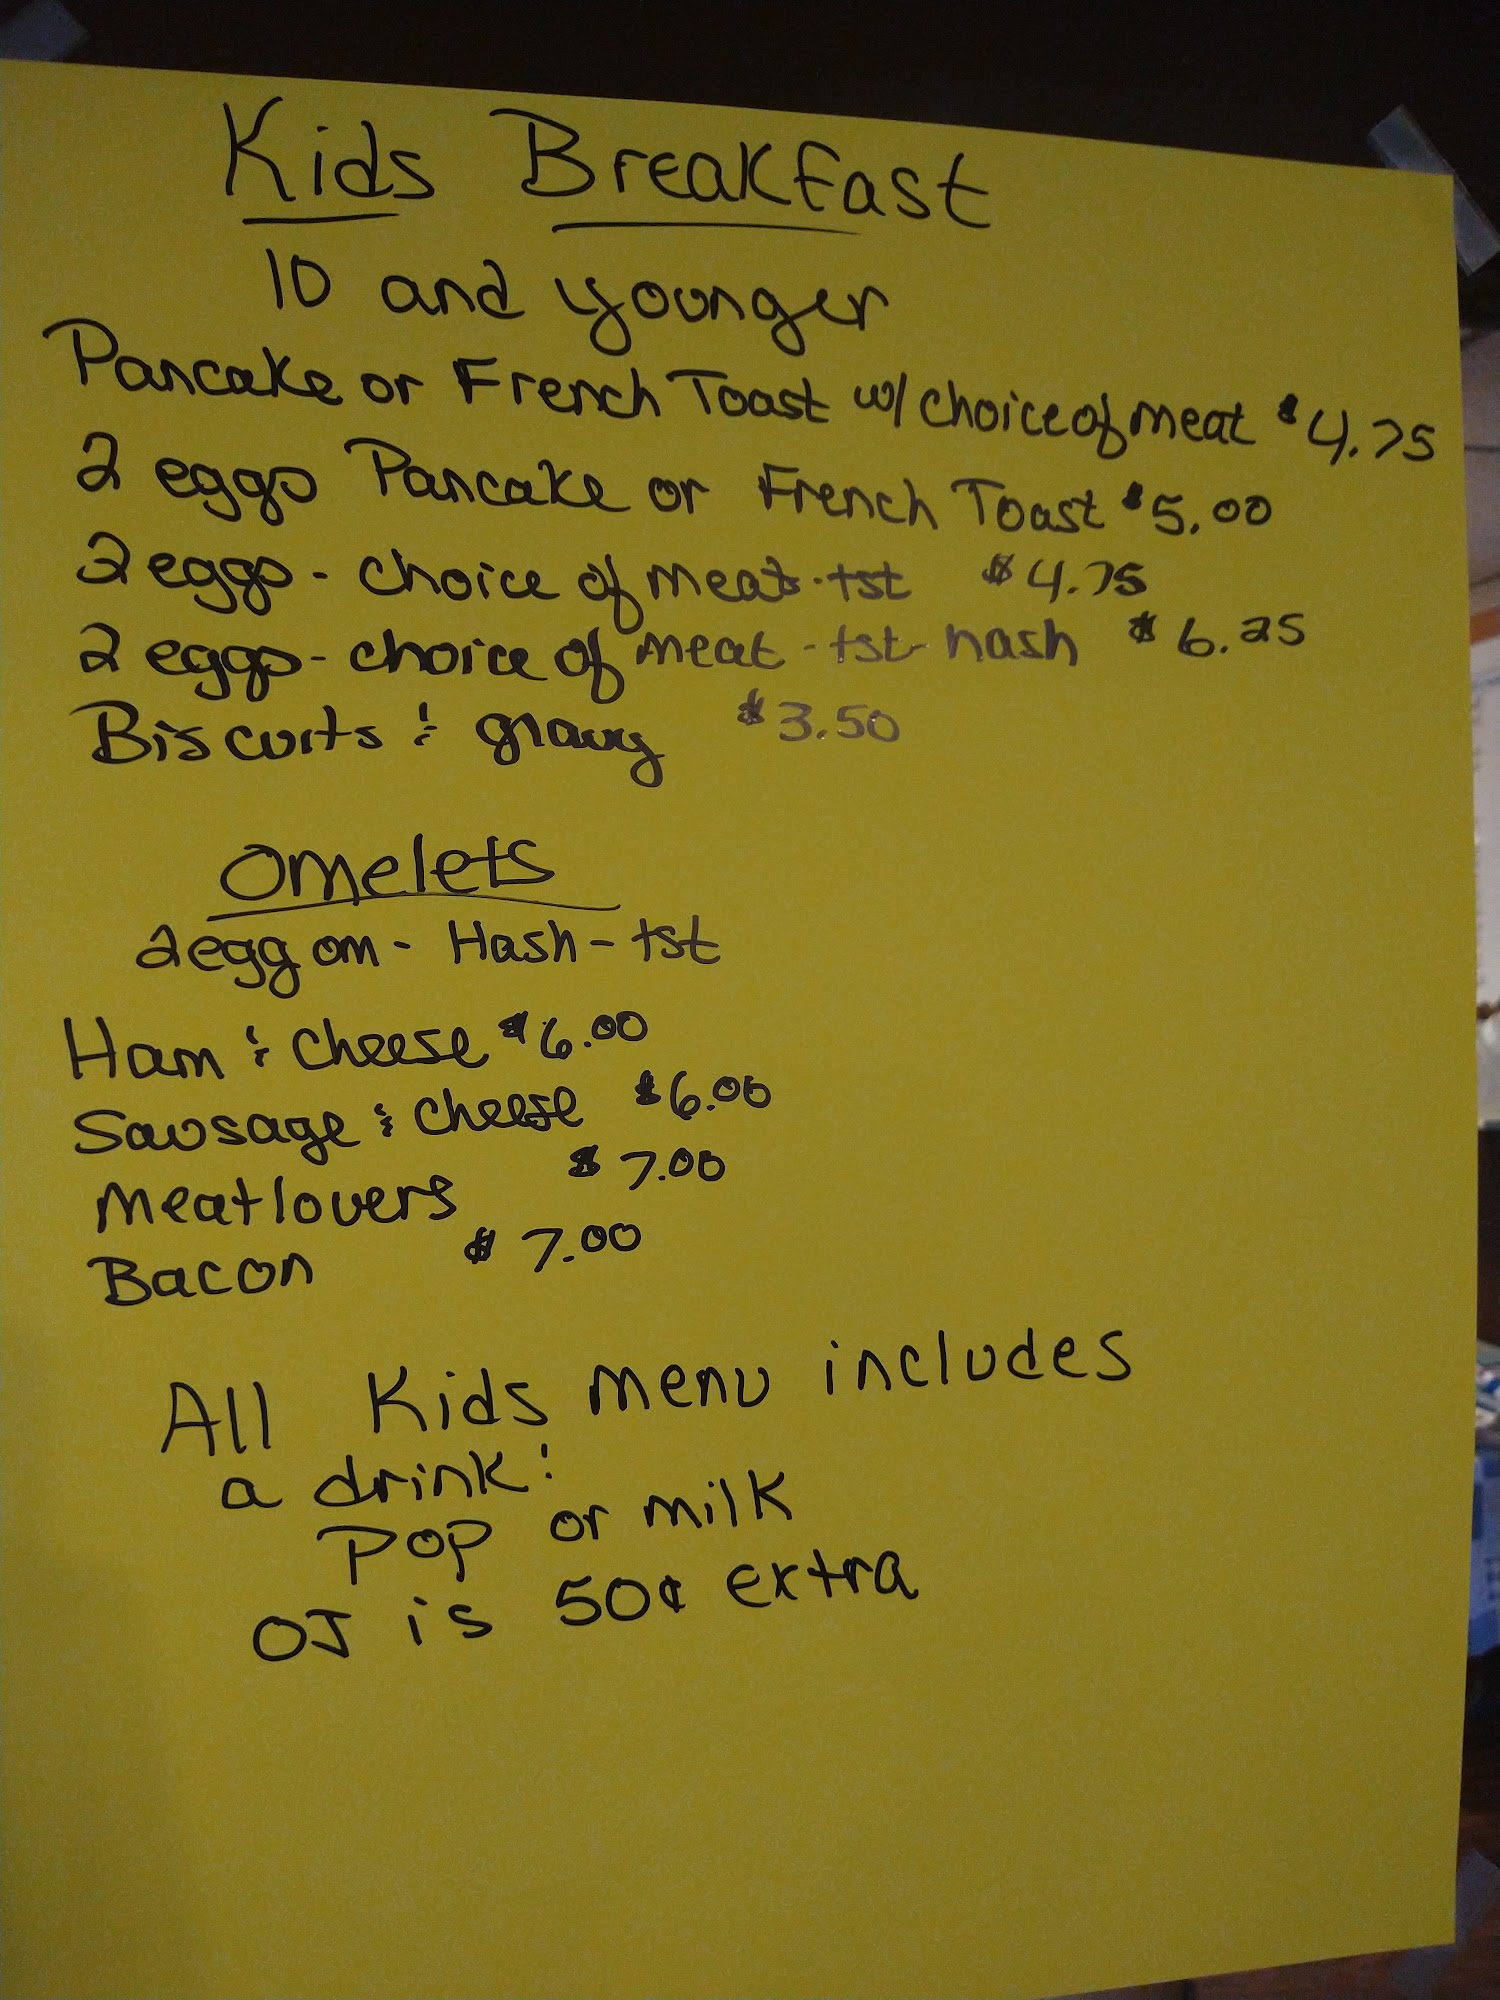 Kids Breakfast
10 and younger
Pancake or French Toast w/ choice of meat $4.75
2 eggs Pancake or French Toast $5.00
2 eggs - choice of meat - tst $4.75
2 eggs - choice of meat - tst - hash $6.25
Biscuits & gravy $3.50
Omelets
2 egg om - Hash - tst
Ham & cheese $6.00
Sausage & cheese $6.00
Meatlovers $7.00
Bacon $7.00
All Kids menu includes
a drink:
Pop or milk
OJ is 50¢ extra